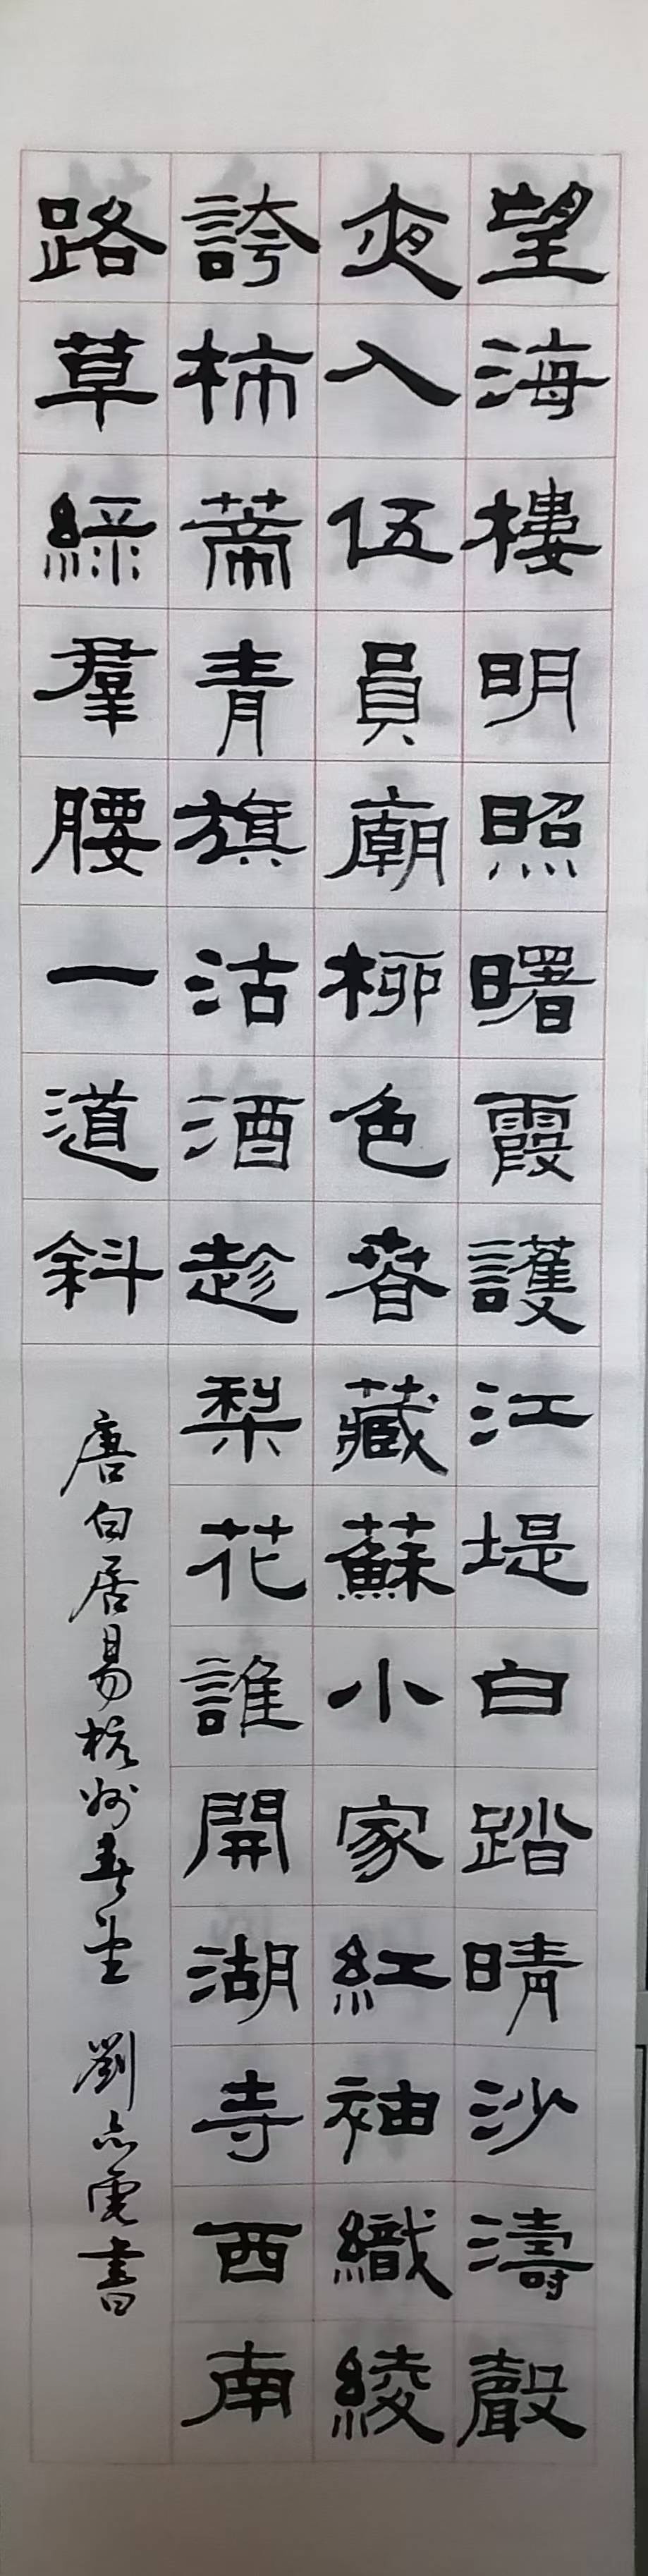 望海樓明照曙霞護江堤白踏晴沙濤聲
夜入伍員廟柳色春藏蘇小家紅袖織綾
誇柿蒂青旗沽酒趁梨花誰開湖寺西南
路草綠羣腰一道斜
唐白居易杭州春望 劉書